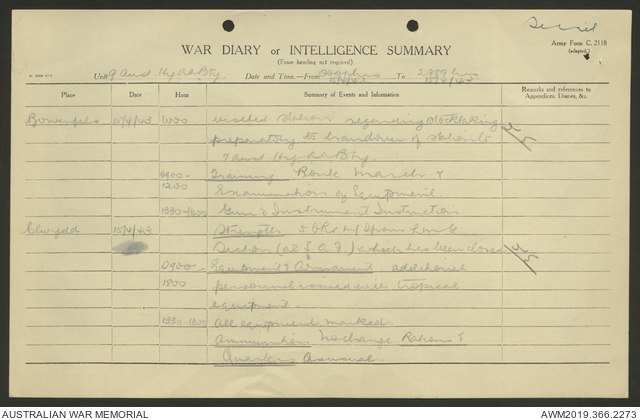 Secret
WAR DIARY or INTELLIGENCE SUMMARY
Army Form C. 2118
(adapted.)
(Erase heading not required).
Unit 9 Aust Hy AA Bty. Date and Time—From 0001 hrs 15/4/43 To 2359 hrs 15/4/43
Place Date Hour Summary of Events and Information Remarks and references to Appendices, Diaries, &c.
Bowenfels 15/4/43 1000 visited station regarding stocktaking
preparatory to handover of station to
7 Aust Hy AA Bty.
0900- Training Route March &
1200 Examination of Equipment
1330-1600 Gun & Instrument Instruction
Clwydd 15/4/43 Strength 5 ORs from
Section (at S.A.F.) which has been closed
0900- Equipment & Armament additional
1800 personnel issued with tropical
equipment.
1330-1600 All equipment marked.
Ammunition No change Rations &
Quarters As usual
AUSTRALIAN WAR MEMORIAL
AWM2019.366.2273